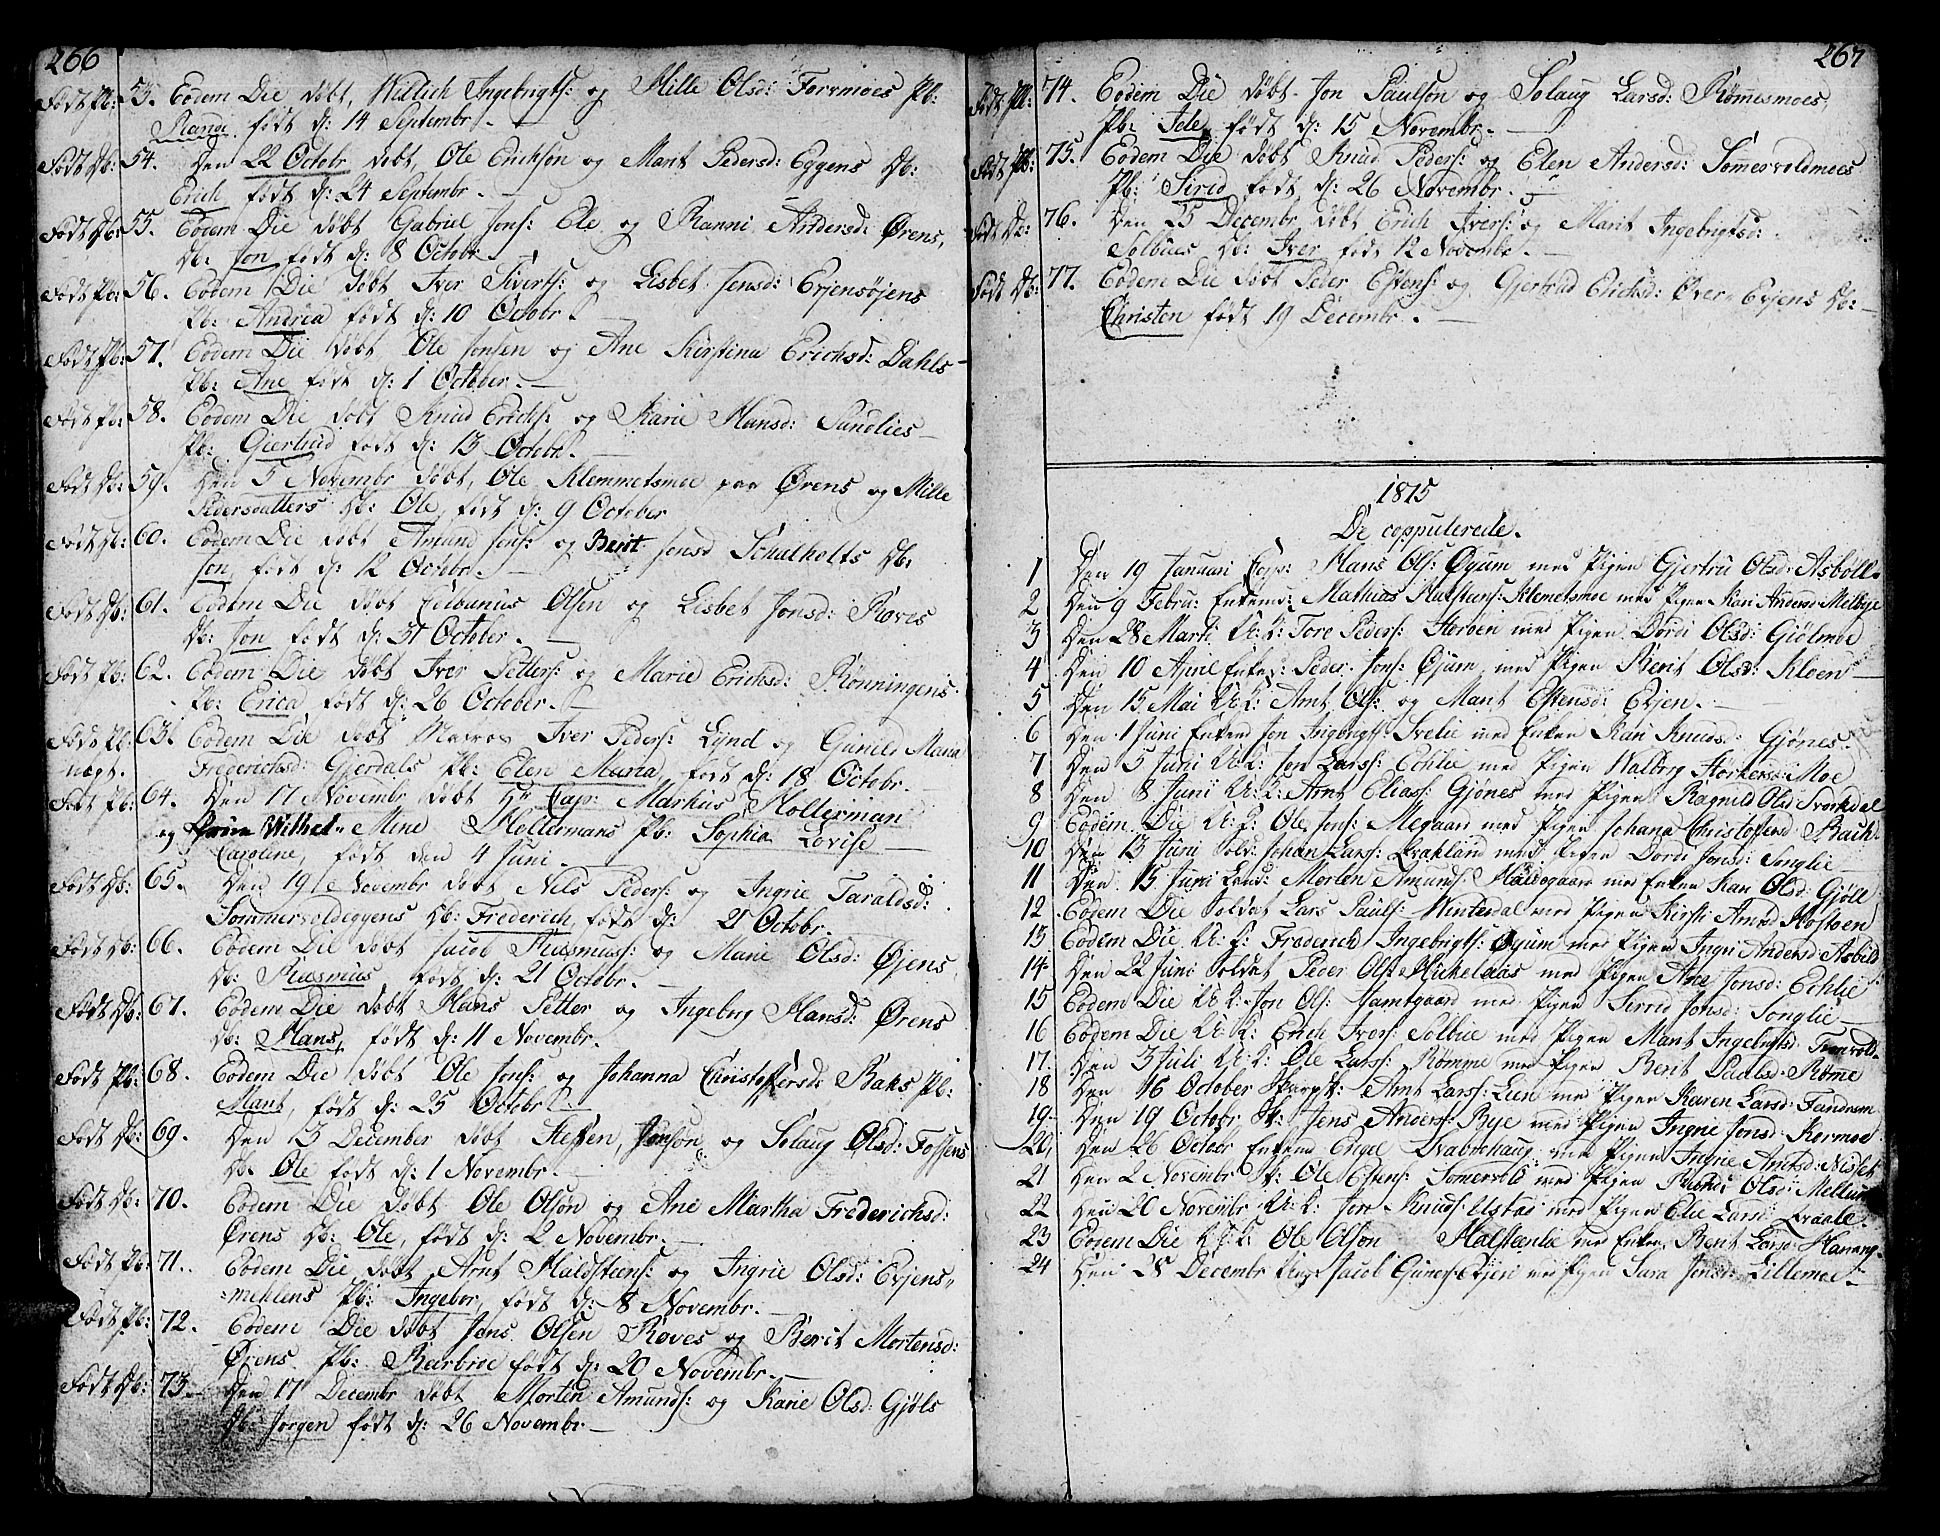 266
Født Pb: 53. Eodem Die døbt, Ingebrigts: og Mille Olsd: Forrmoes Pb:
født d: 14 Septembr.
Født Db: 54. Den 22 Octobr døbt, Ole Erickson og Marit Pedersd: Eggens Db:
Erich født d: 24 Septembr.
Født Db: 55. Eodem Die døbt Gabriel Jons: Ele og Ranni Andersd: Ørens,
Db: Jon født d: 8 Octobr.
Født Pb: 56. Eodem Die døbt Iver Siverts: og Lisbet Jensd: Evjensøjens
Pb: Andrea født d: 10 Octobr.
Født Pb: 57. Eodem Die døbt Ole Jonsen og Ane Kirstina Ericksd: Dahls
Pb: Ane født d: 1 October.
Født Pb: 58. Eodem Die døbt Knud Ericks: og Karie Hansd: Sundlies
Pb: Gjertrud født d: 13 Octobr.
Født Db: 59. Den 5 Novembr døbt, Ole Klemmetsmoe paa Ørens og Mille
Pedersdatters Db: Ole, født d: 9 October
Født Db: 60. Eodem Die døbt Amund Jons: og Berit Jonsd Schulholts Db:
Jon, født d: 12 Octobr.
Født Db: 61. Eodem Die døbt Olsen og Lisbet Jonsd: Roves
Db: Jon født d: 31 October.
Født Pb: 62. Eodem Die døbt Iver Petters: og Marie Ericksd: Rønningens
Pb: Erica født d: 26 October.
Født Pb: 63. Eodem Die døbt Iver Peders: Lynd og Gunild Maria
uægt. Frederichsd: Gjerdals Pb: Elen Maria, født d: 18 Octobr.
Født Pb: 64. Den 17 Novembr døbt Hr Cap: Markus Holterman
og Wilhel- Mine Holtermans Pb: Sophia Lovise
Caroline, født den 4 Juni.
Født Db: 65. Den 19de Novembr døbt Nils Peders: og Ingrie Taraldsd:
Sommervoldegyens Db: Frederich, født d: 21 Octobr.
Født Db: 66. Eodem Die døbt Jacob Rasmus: og Marie Olsd: Øjens,
Db: Rasmus født d: 21 Octobr.
Født Db: 67. Eodem Die døbt Hans Petter og Ingebrg Hansd: Ørens
Db: Hans, født d: 11 Novembr.
Født Pb: 68. Eodem Die døbt Ole Jons: og Johanna Christoffersd: Baks Pb:
Marit, født d: 25 Octobr.
Født Db: 69. Den 13 December døbt Steffen, Jonson og Solaug Olsd: Fossens
Db. Ole født d: 1 Novembr.
Født Db: 70. Eodem Die døbt Ole Olsøn og Ane Martha Frederichsd:
Ørens Db: Ole, født d: 2 Novembr.
Født Pb: 71. Eodem Die døbt Arnt Haldsteens: og Ingrie Olsd: Evjens,
mehlens Pb: Ingebor, født d: 8 Novembr.
Født Pb: 72. Eodem Die døbt Jens Olsen Roves og Berit Mortensd:
Ørens Pb: Barbroe født d: 20 Novembr.
Født Db: 73. Den 17 Decembr døbt Morten Amunds: og Karie Olsd: Gjøls
Db: Jorgen født d: 26 Novembr.
267
Født Pb: 74. Eodem Die døbt Jon Paulson og Solaug Larsd: Rømesmoes,
Pb: født d: 15 Novembr.
Født Pb: 75. Eodem Die døbt Knud Peders: og Elen Andersd: Somervoldmoes
Pb: Sirid født d: 26 Novembr.
Født Db: 76. Den 25 Decembr døbt Erich Ivers: og Marit Ingebrigtsd:
Solbues Db: Iver født 12 Novembr.
Født Db: 77. Eodem Die døbt Peder Estens: og Gjertrud Ericksd: Øver-Evjens Db:
Christen født 19 Decembr.
1815
De coppulerede.
1 Den 19 Januari Hans Ols: Øyum med Pigen Gjertru Olsd: Asbøll
2 Den 9 Febru: Enkem: Mathias Halsteens: Klemetsmoe med Pigen Kari Andersd Melbye
3 Den 28 Marti U: K: Tore Peders: Horoen med Pigen Dordi Olsd: Gjølmoe
4 Den 10 April Enkem: Peder Jons: Øjum, med Pigen Berit Olsd: Kloen
5 Den 15 Mai U: K: Arnt Ols: og Marit Estensd: Evjen.
6 Den 1 Juni Enkem Jon Ingebrigts: Svelie med Enken Kari Knuds: Gjønes
7 Den 5 Juni U: K: Jon Lars: Echlie med Pigen Walbrg Moe
8 Den 8 Juni U: K: Arnt Elias: Gjønes med Pigen Ragnild Olsd Svorkdal
9 Eodem Die U: K: Ole Jons: Megaard med Pigen Johana Christoffersd Bach
10 Den 13 Juni Sold: Johan Lars: med Pigen Dordi Jonsd: Songlie
11 Den 15 Juni Morten Amunds: med Enken Kari Olsd: Gjøll
12 Eodem Die Soldat Lars Pauls: Winterdal med Pigen Kirsti Arntsd Hostoen
13 Eodem Die U: K: Frederich Ingebrigts: Øyum med Pigen Ingri Andersd Asbøll
14 Den 22 Juni Soldat Peder Ols: med Pigen Ane Jonsd: Echlie
15 Eodem Die U: K: Jon Ols: med Pigen Sirrid Jonsd: Songlie
16 Eodem Die U: K: Erich Ivers: Solbue med Pigen Marit Ingebrigtsd:
17. Den 3 Juli U: K: Ole Lars: Rømme med Pigen Berit Paulsd: Røme
18 Den 16 October Skarpt: Arnt Lars: Lien med Pigen Karen Larsd: Fandrem
19. Den 19 Octobr Jens Anders: Bye med Pigen Ingrie Jonsd: Kormoe
20, Den 26 Octobr Enkem med Pigen Ingrie Arntsd:
21 Den 2 Novembr Ole Estens: Somervold med Pigen Olsd: Mellum
22 Den 20 Novembr U: K: Jon Knuds: Ustad med Pigen Elie Larsd:
23 Eodem Die U: K: Ole Olson Halsteenlie med Enken Berit Larsd:
24 Den 28 Decembr Jacob Evjen med Pigen Sara Jonsd: Lillemoe